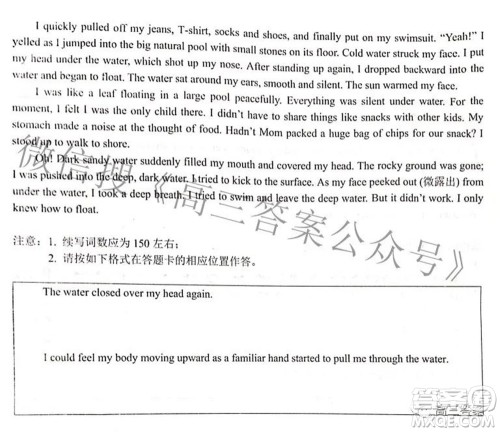 I quickly pulled off my jeans, T-shirt, socks and shoes, and finally put on my swimsuit. “Yeah!” I
yelled as I jumped into the big natural pool with small stones on its floor. Cold water struck my face. I put
my head under the water, which shot up my nose. After standing up again, I dropped backward into the
water and began to float. The water sat around my ears, smooth and silent. The sun warmed my face.
I was like a leaf floating in a large pool peacefully. Everything was silent under water. For the
moment, I felt I was the only child there. I didn’t have to share things like snacks with other kids. My
stomach made a noise at the thought of food. Hadn’t Mom packed a huge bag of chips for our snack? I
stood up to walk to shore.
Oh! Dark sandy water suddenly filled my mouth and covered my head. The rocky ground was gone;
I was pushed into the deep, dark water. I tried to kick to the surface. As my face peeked out (微露出) from
under the water, I took a deep breath. I tried to swim and leave the deep water. But it didn’t work. I only
knew how to float.
微信搜《高三答案公众号》
注意：1. 续写词数应为 150 左右；
2. 请按如下格式在答题卡的相应位置作答。
The water closed over my head again.
I could feel my body moving upward as a familiar hand started to pull me through the water.
答案圈
MXQE.COM